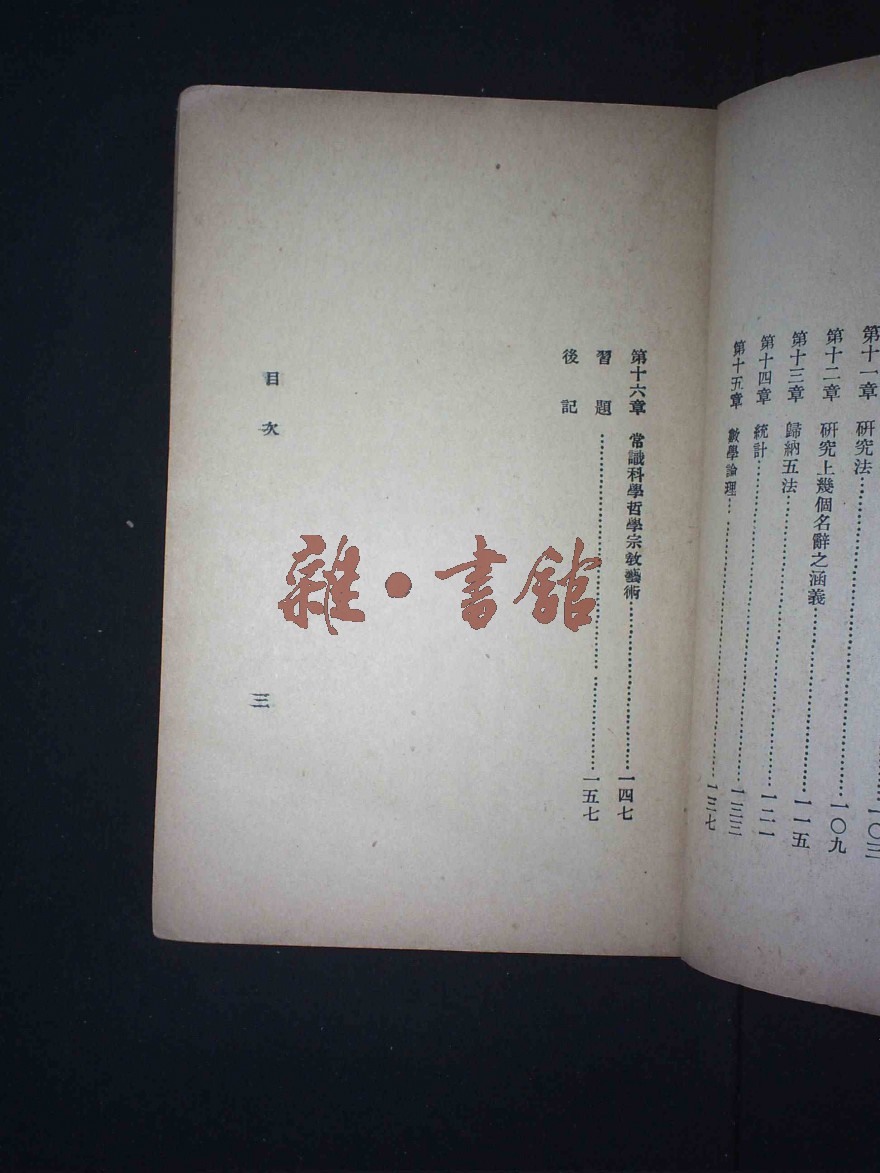 一〇三
第十一章 研究法……一〇九
第十二章 研究上幾個名辭之涵義……一一五
第十三章 歸納五法……一二一
第十四章 統計……一三三
第十五章 數學論理……一三七
第十六章 常識科學哲學宗教藝術……一四七
習題……一五七
後記
目次
三
雜·書館